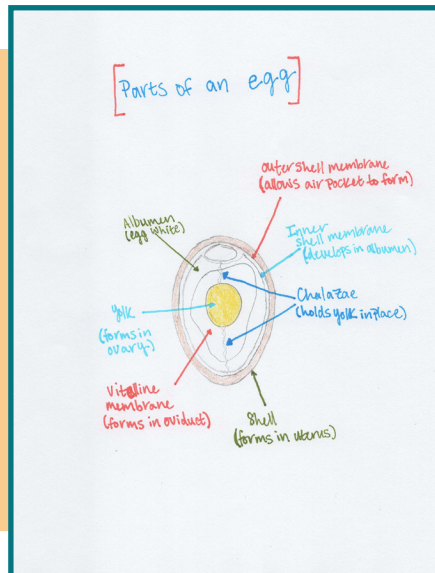 [Parts of an egg]
outer shell membrane
(allows air pocket to form)
Albumen
(egg white)
Inner
shell membrane
(develops in albumen)
Chalazae
(holds yolk in place)
Yolk
(forms in
ovary)
Vitelline
membrane
(forms in oviduct)
Shell
(forms in uterus)